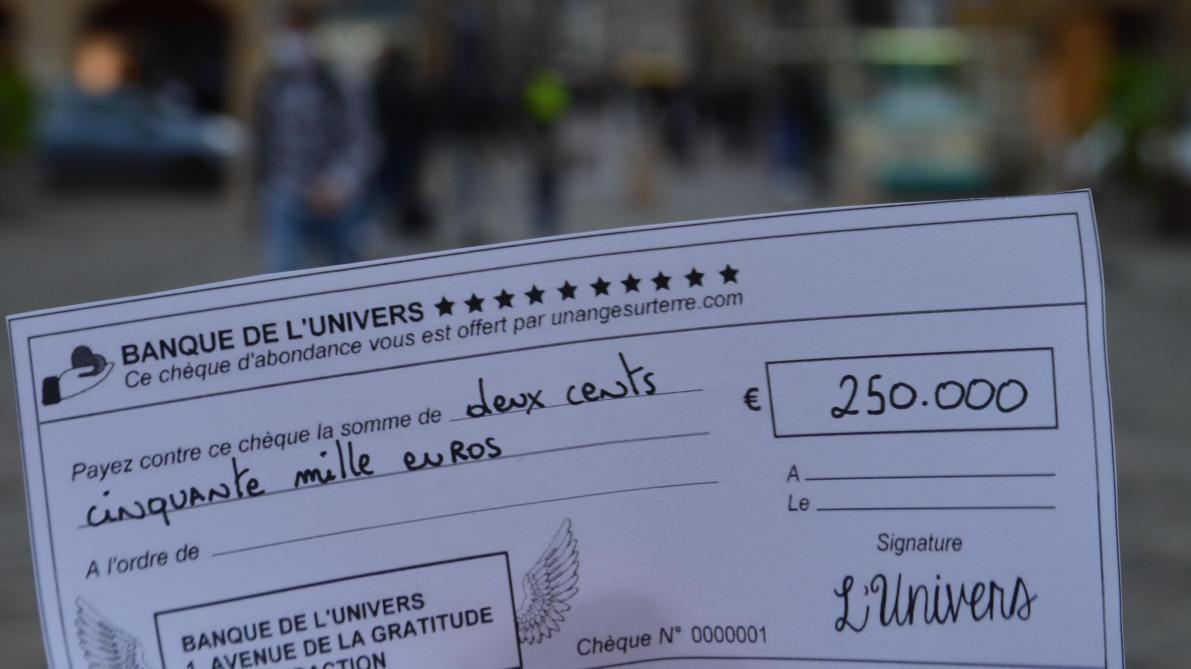 BANQUE DE L'UNIVERS ★★★★★★★★★★
Ce chèque d'abondance vous est offert par unangesurterre.com
Payez contre ce chèque la somme de deux cents
€ 250.000
cinquante mille euros
A
Le
A l'ordre de
Signature
L'Univers
BANQUE DE L'UNIVERS
1, AVENUE DE LA GRATITUDE
Chèque N° 0000001